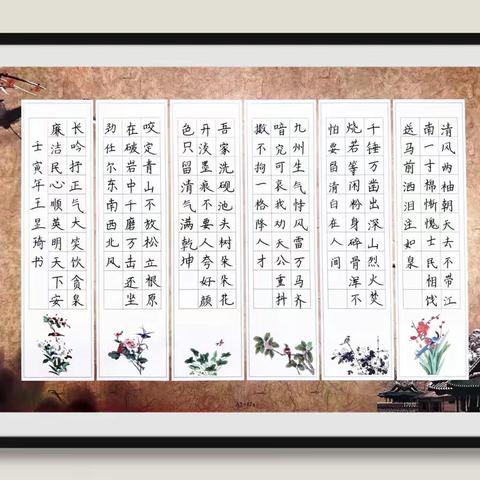 清风两袖朝天去不带江
南一寸棉惭愧士民相饯
送马前洒泪注如泉
千锤万凿出深山烈火焚
烧若等闲粉身碎骨浑不
怕要留清白在人间
九州生气恃风雷万马齐
喑究可哀我劝天公重抖
擞不拘一格降人才
吾家洗砚池头树朵朵花
开淡墨痕不要人夸好颜
色只留清气满乾坤
咬定青山不放松立根原
在破岩中千磨万击还坚
劲任尔东南西北风
长吟抒正气大笑饮贪泉
廉洁民心顺英明天下安
壬寅年王昱琦书